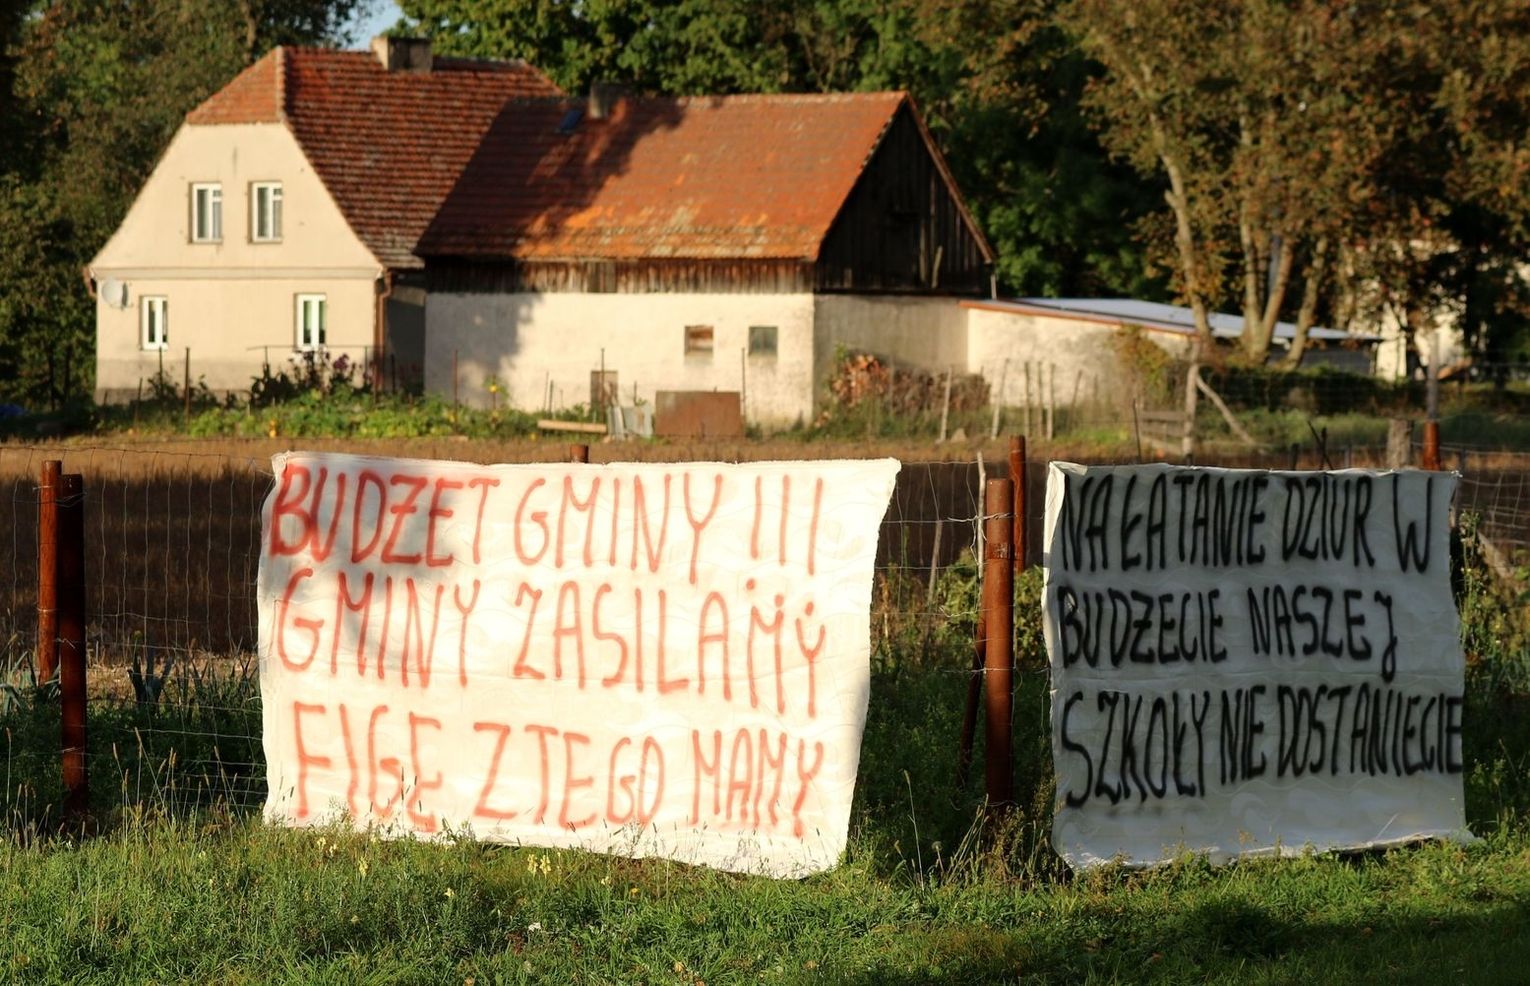 BUDŻET GMINY !!!
GMINY ZASILAMY
FIGĘ Z TEGO MAMY
NA ŁATANIE DZIUR W
BUDŻECIE NASZEJ
SZKOŁY NIE DOSTANIECIE